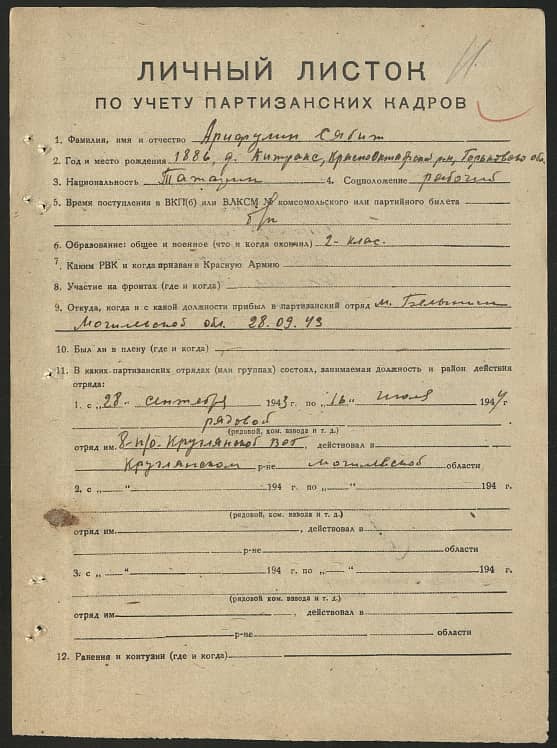 ЛИЧНЫЙ ЛИСТОК
ПО УЧЕТУ ПАРТИЗАНСКИХ КАДРОВ
1. Фамилия, имя и отчество Арифулин Сябит
2. Год и место рождения 1886, д. Китракс, Краснооктябрский р-н, Горьковской обл.
3. Национальность Татарин 4. Соцположение рабочий
5. Время поступления в ВКП(б) или ВЛКСМ № комсомольского или партийного билета
б/п
6. Образование: общее и военное (что и когда окончил) 2-клас.
7. Каким РВК и когда призван в Красную Армию
8. Участие на фронтах (где и когда)
9. Откуда, когда и с какой должности прибыл в партизанский отряд м. Белыничи
Могилевской обл. 28.09.43
10. Был ли в плену (где и когда)
11. В каких партизанских отрядах (или группах) состоял, занимаемая должность и район действия
отряда:
1. с „28" сентября 1943 г. по „16" июля 1944 г.
рядовой
(рядовой, ком. взвода и т. д.)
отряд им. 8-п/о. Круглянской ВОГ, действовал в
Круглянском р-не Могилевской области
2. с „ — " 194 г. по „ — " 194 г.
(рядовой, ком. взвода и т. д.)
отряд им. , действовал в
р-не области
3. с „ — " 194 г. по „ — " 194 г.
(рядовой, ком. взвода и т. д.)
отряд им. , действовал в
р-не области
12. Ранения и контузии (где и когда)